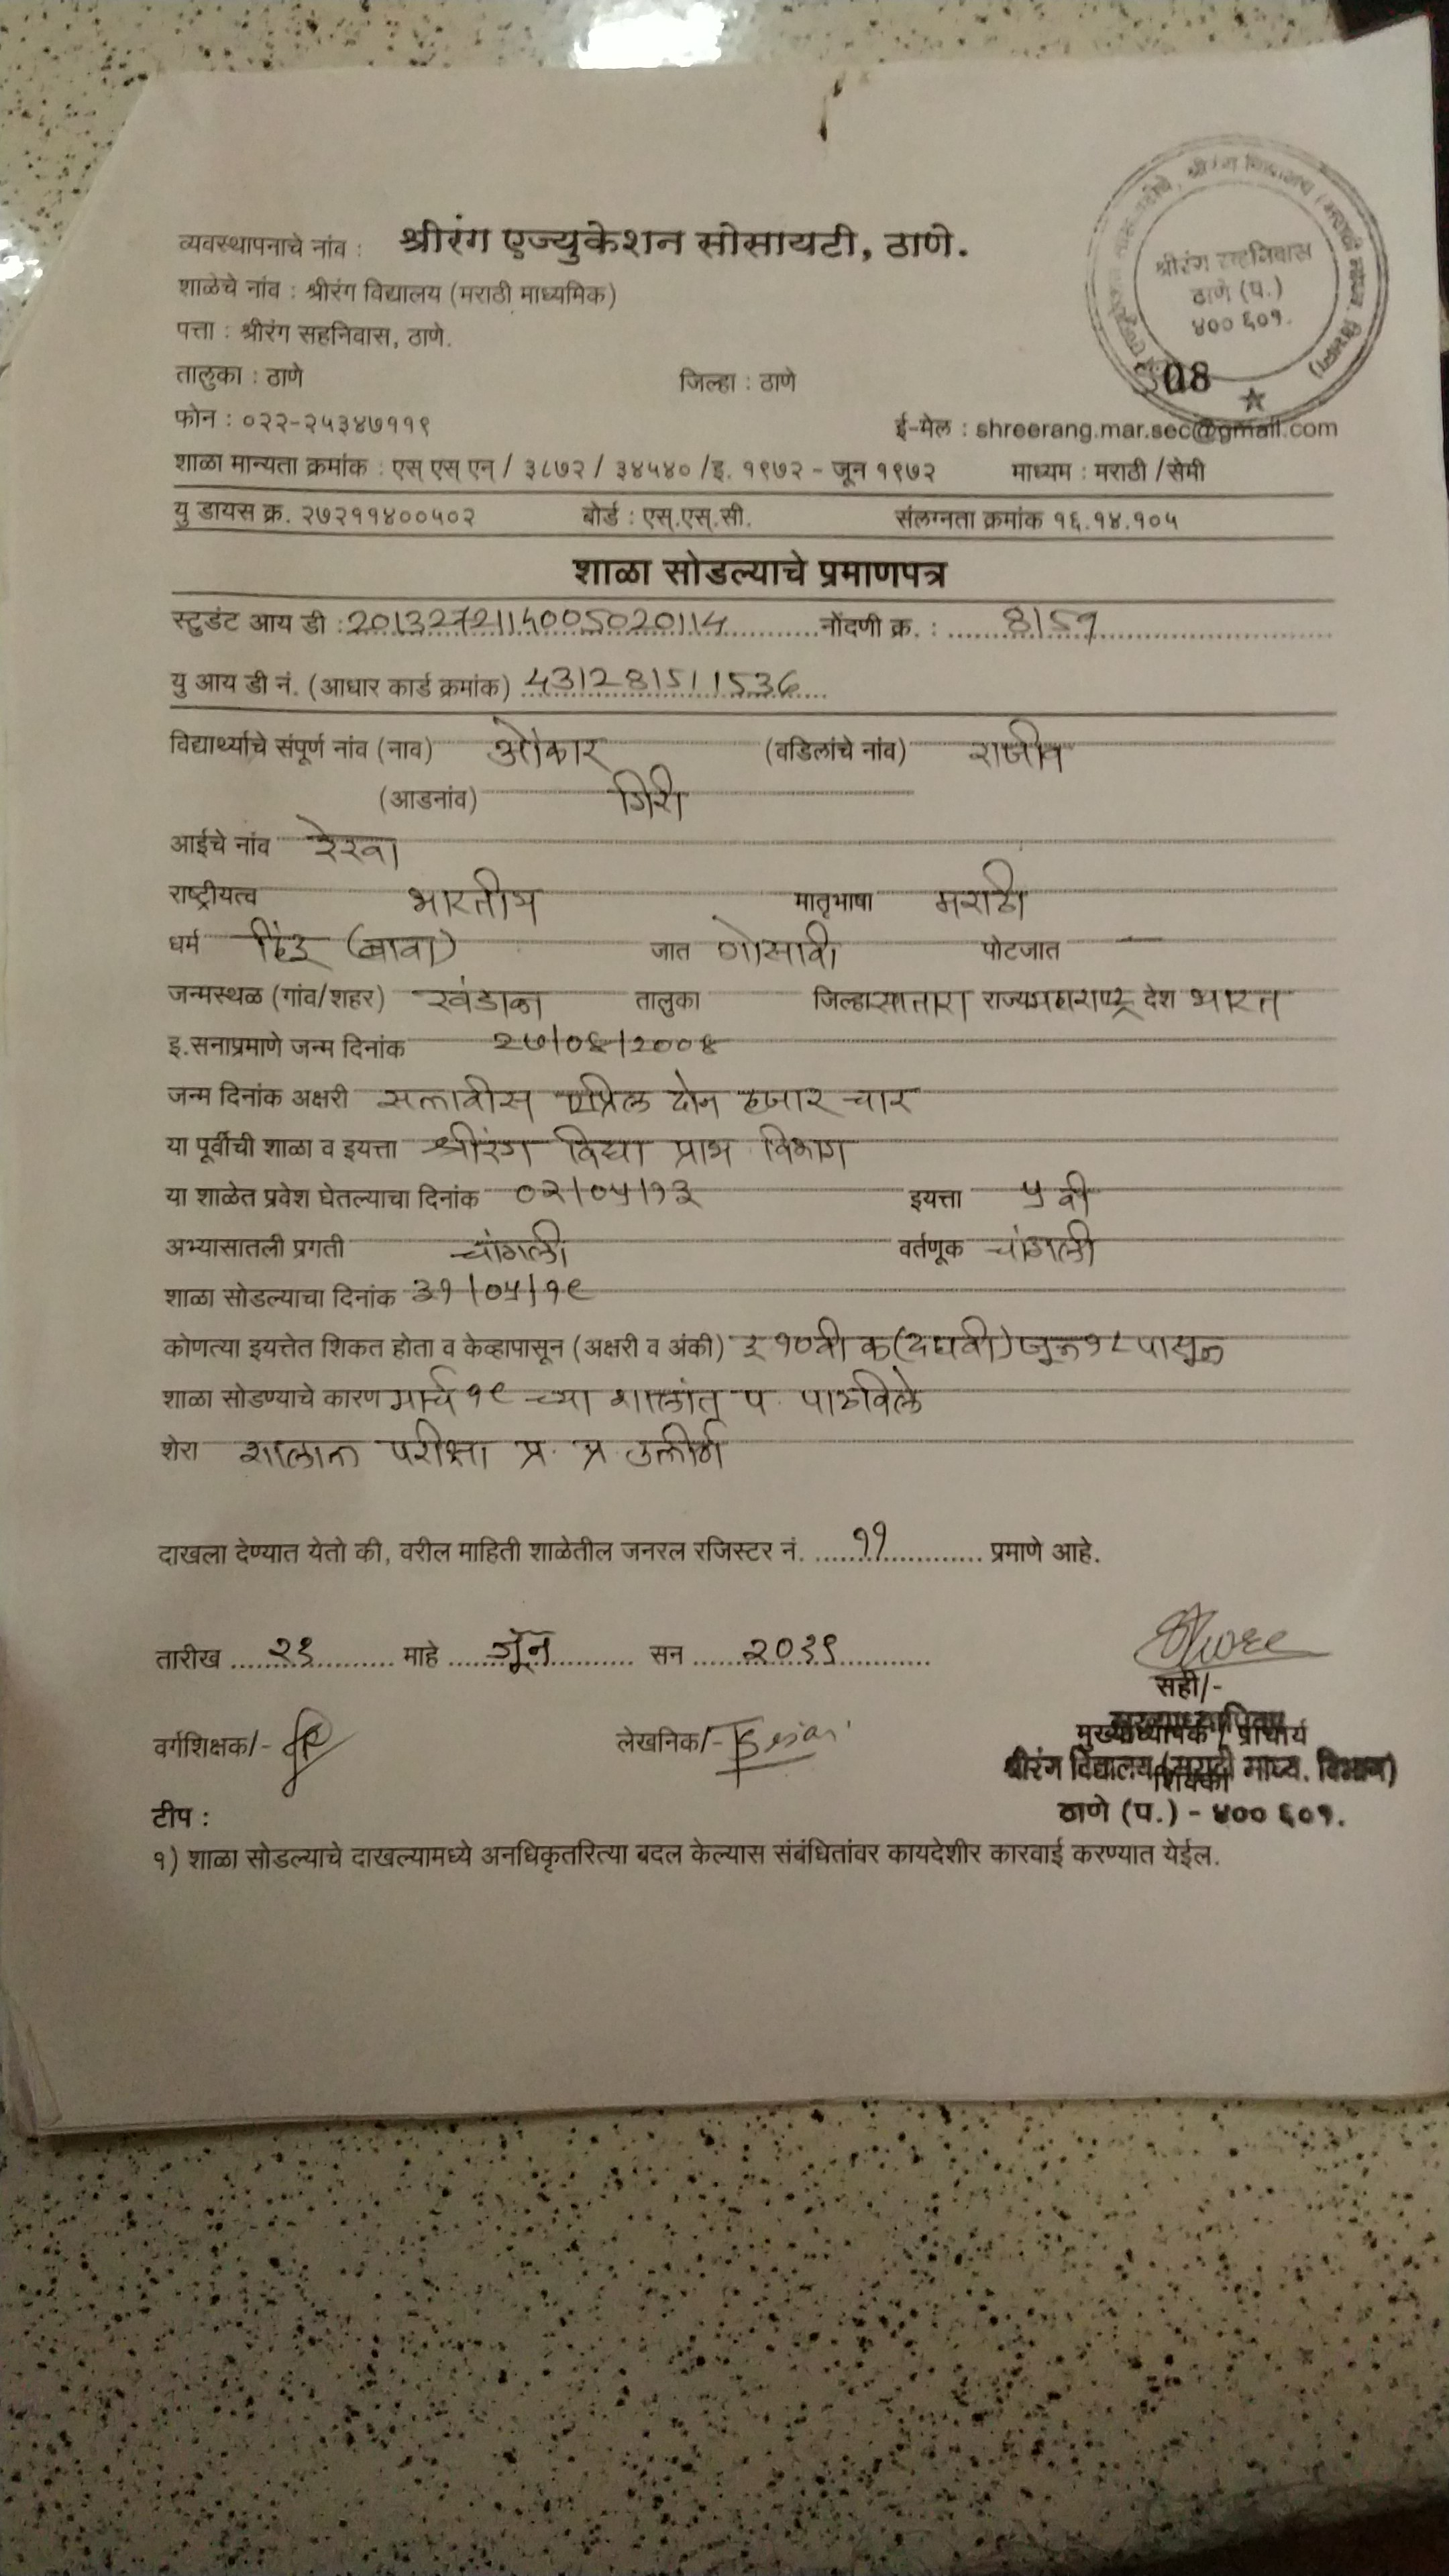 श्रीरंग विद्यालय
श्रीरंग सहनिवास
ठाणे (प.)
४०० ६०१.
व्यवस्थापनाचे नांव : श्रीरंग एज्युकेशन सोसायटी, ठाणे.
शाळेचे नांव : श्रीरंग विद्यालय (मराठी माध्यमिक)
पत्ता : श्रीरंग सहनिवास, ठाणे.
तालुका : ठाणे जिल्हा : ठाणे
फोन : ०२२-२५३४७११९ ई-मेल : shreerang.mar.sec@gmail.com
शाळा मान्यता क्रमांक : एस् एस् एन् / ३८७२ / ३४५४० /इ. १९७२ - जून १९७२ माध्यम : मराठी /सेमी
यु डायस क्र. २७२११४००५०२ बोर्ड : एस्.एस्.सी. संलग्नता क्रमांक १६.१४.१०५
शाळा सोडल्याचे प्रमाणपत्र
स्टुडंट आय डी : 2013272114005020114 नोंदणी क्र. : 8159
यु आय डी नं. (आधार कार्ड क्रमांक) 431281511536
विद्यार्थ्याचे संपूर्ण नांव (नाव) ओंकार (वडिलांचे नांव) राजीव
(आडनांव) गिरी
आईचे नांव रेखा
राष्ट्रीयत्व भारतीय मातृभाषा मराठी
धर्म हिंदू (बावा) जात गोसावी पोटजात —
जन्मस्थळ (गांव/शहर) खंडाळा तालुका जिल्हा सातारा राज्य महाराष्ट्र देश भारत
इ.सनाप्रमाणे जन्म दिनांक २७/०४/२००४
जन्म दिनांक अक्षरी सत्तावीस एप्रिल दोन हजार चार
या पूर्वीची शाळा व इयत्ता श्रीरंग विद्या प्राथ विभाग
या शाळेत प्रवेश घेतल्याचा दिनांक ०२/०५/१३ इयत्ता ५ वी
अभ्यासातली प्रगती चांगली वर्तणूक चांगली
शाळा सोडल्याचा दिनांक ३१/०५/१९
कोणत्या इयत्तेत शिकत होता व केव्हापासून (अक्षरी व अंकी) इ १०वी क (दहावी) जून १८ पासून
शाळा सोडण्याचे कारण मार्च १९ च्या शालांत प. पाठविले
शेरा शालान्त परीक्षा प्र. प्र उत्तीर्ण
दाखला देण्यात येतो की, वरील माहिती शाळेतील जनरल रजिस्टर नं. ११ प्रमाणे आहे.
तारीख २१ माहे जून सन २०१९
सही/-
वर्गशिक्षक/- लेखनिक/- मुख्याध्यापक / प्राचार्य
श्रीरंग विद्यालय (मराठी माध्य. विभाग)
शिक्का
ठाणे (प.) - ४०० ६०१.
टीप :
१) शाळा सोडल्याचे दाखल्यामध्ये अनधिकृतरित्या बदल केल्यास संबंधितांवर कायदेशीर कारवाई करण्यात येईल.